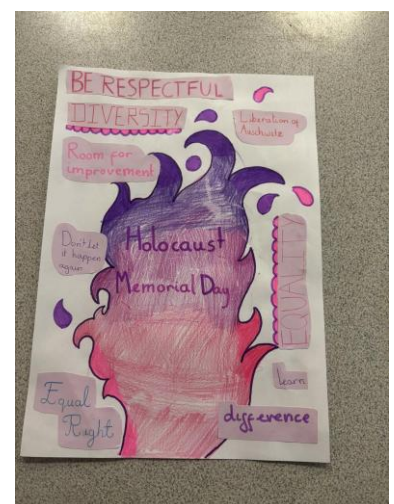 BE RESPECTFUL
DIVERSITY
Liberation of
Auschwitz
Room for
improvement
Don't let
it happen
again
Holocaust
Memorial Day
EQUALITY
learn
Equal
Right
difference